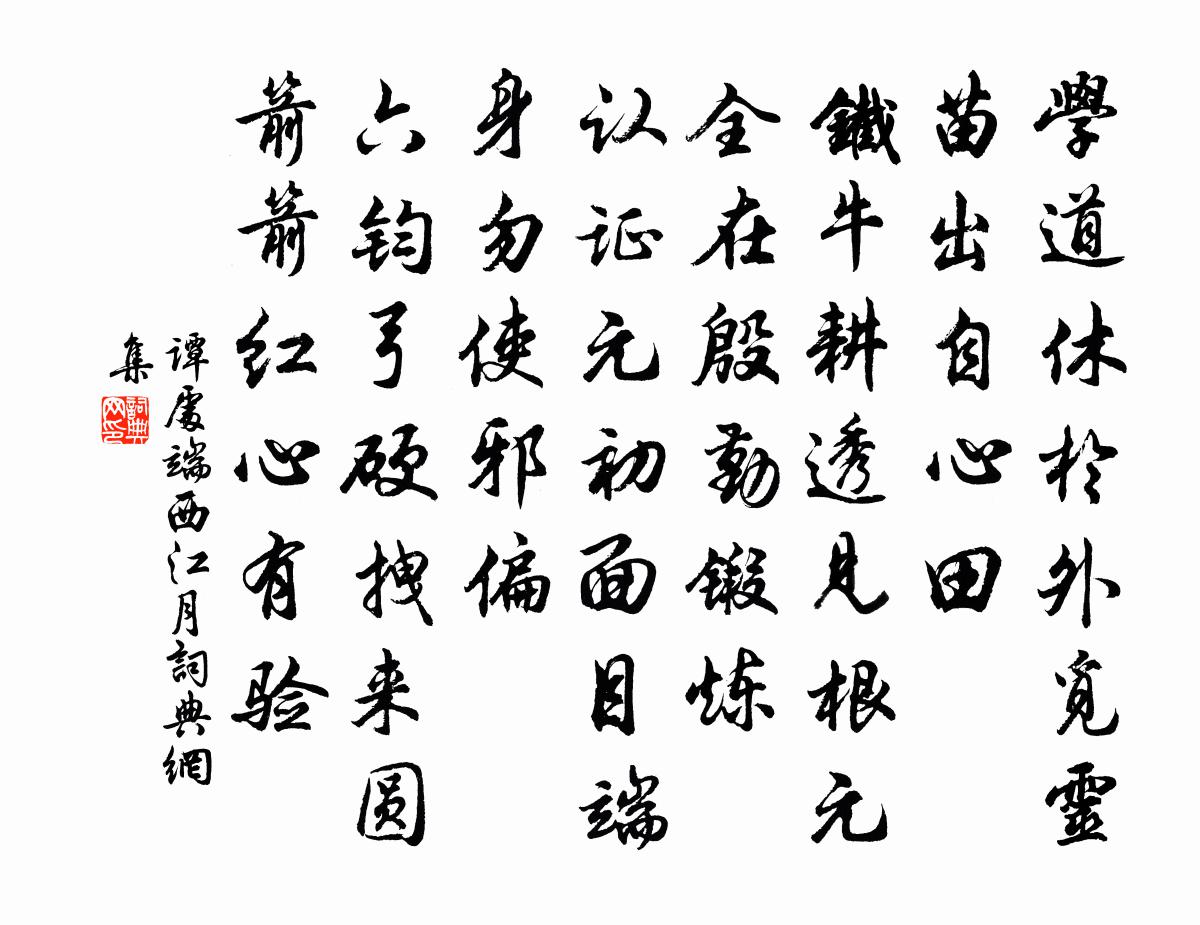 學道休於外覓靈
苗出自心田
鐵牛耕透見根元
全在殷勤鍛炼
认证元初面目端
身勿使邪偏
六钧弓硬拽来圆
箭箭红心有验
谭處端西江月詞典網
集
詞典
网印